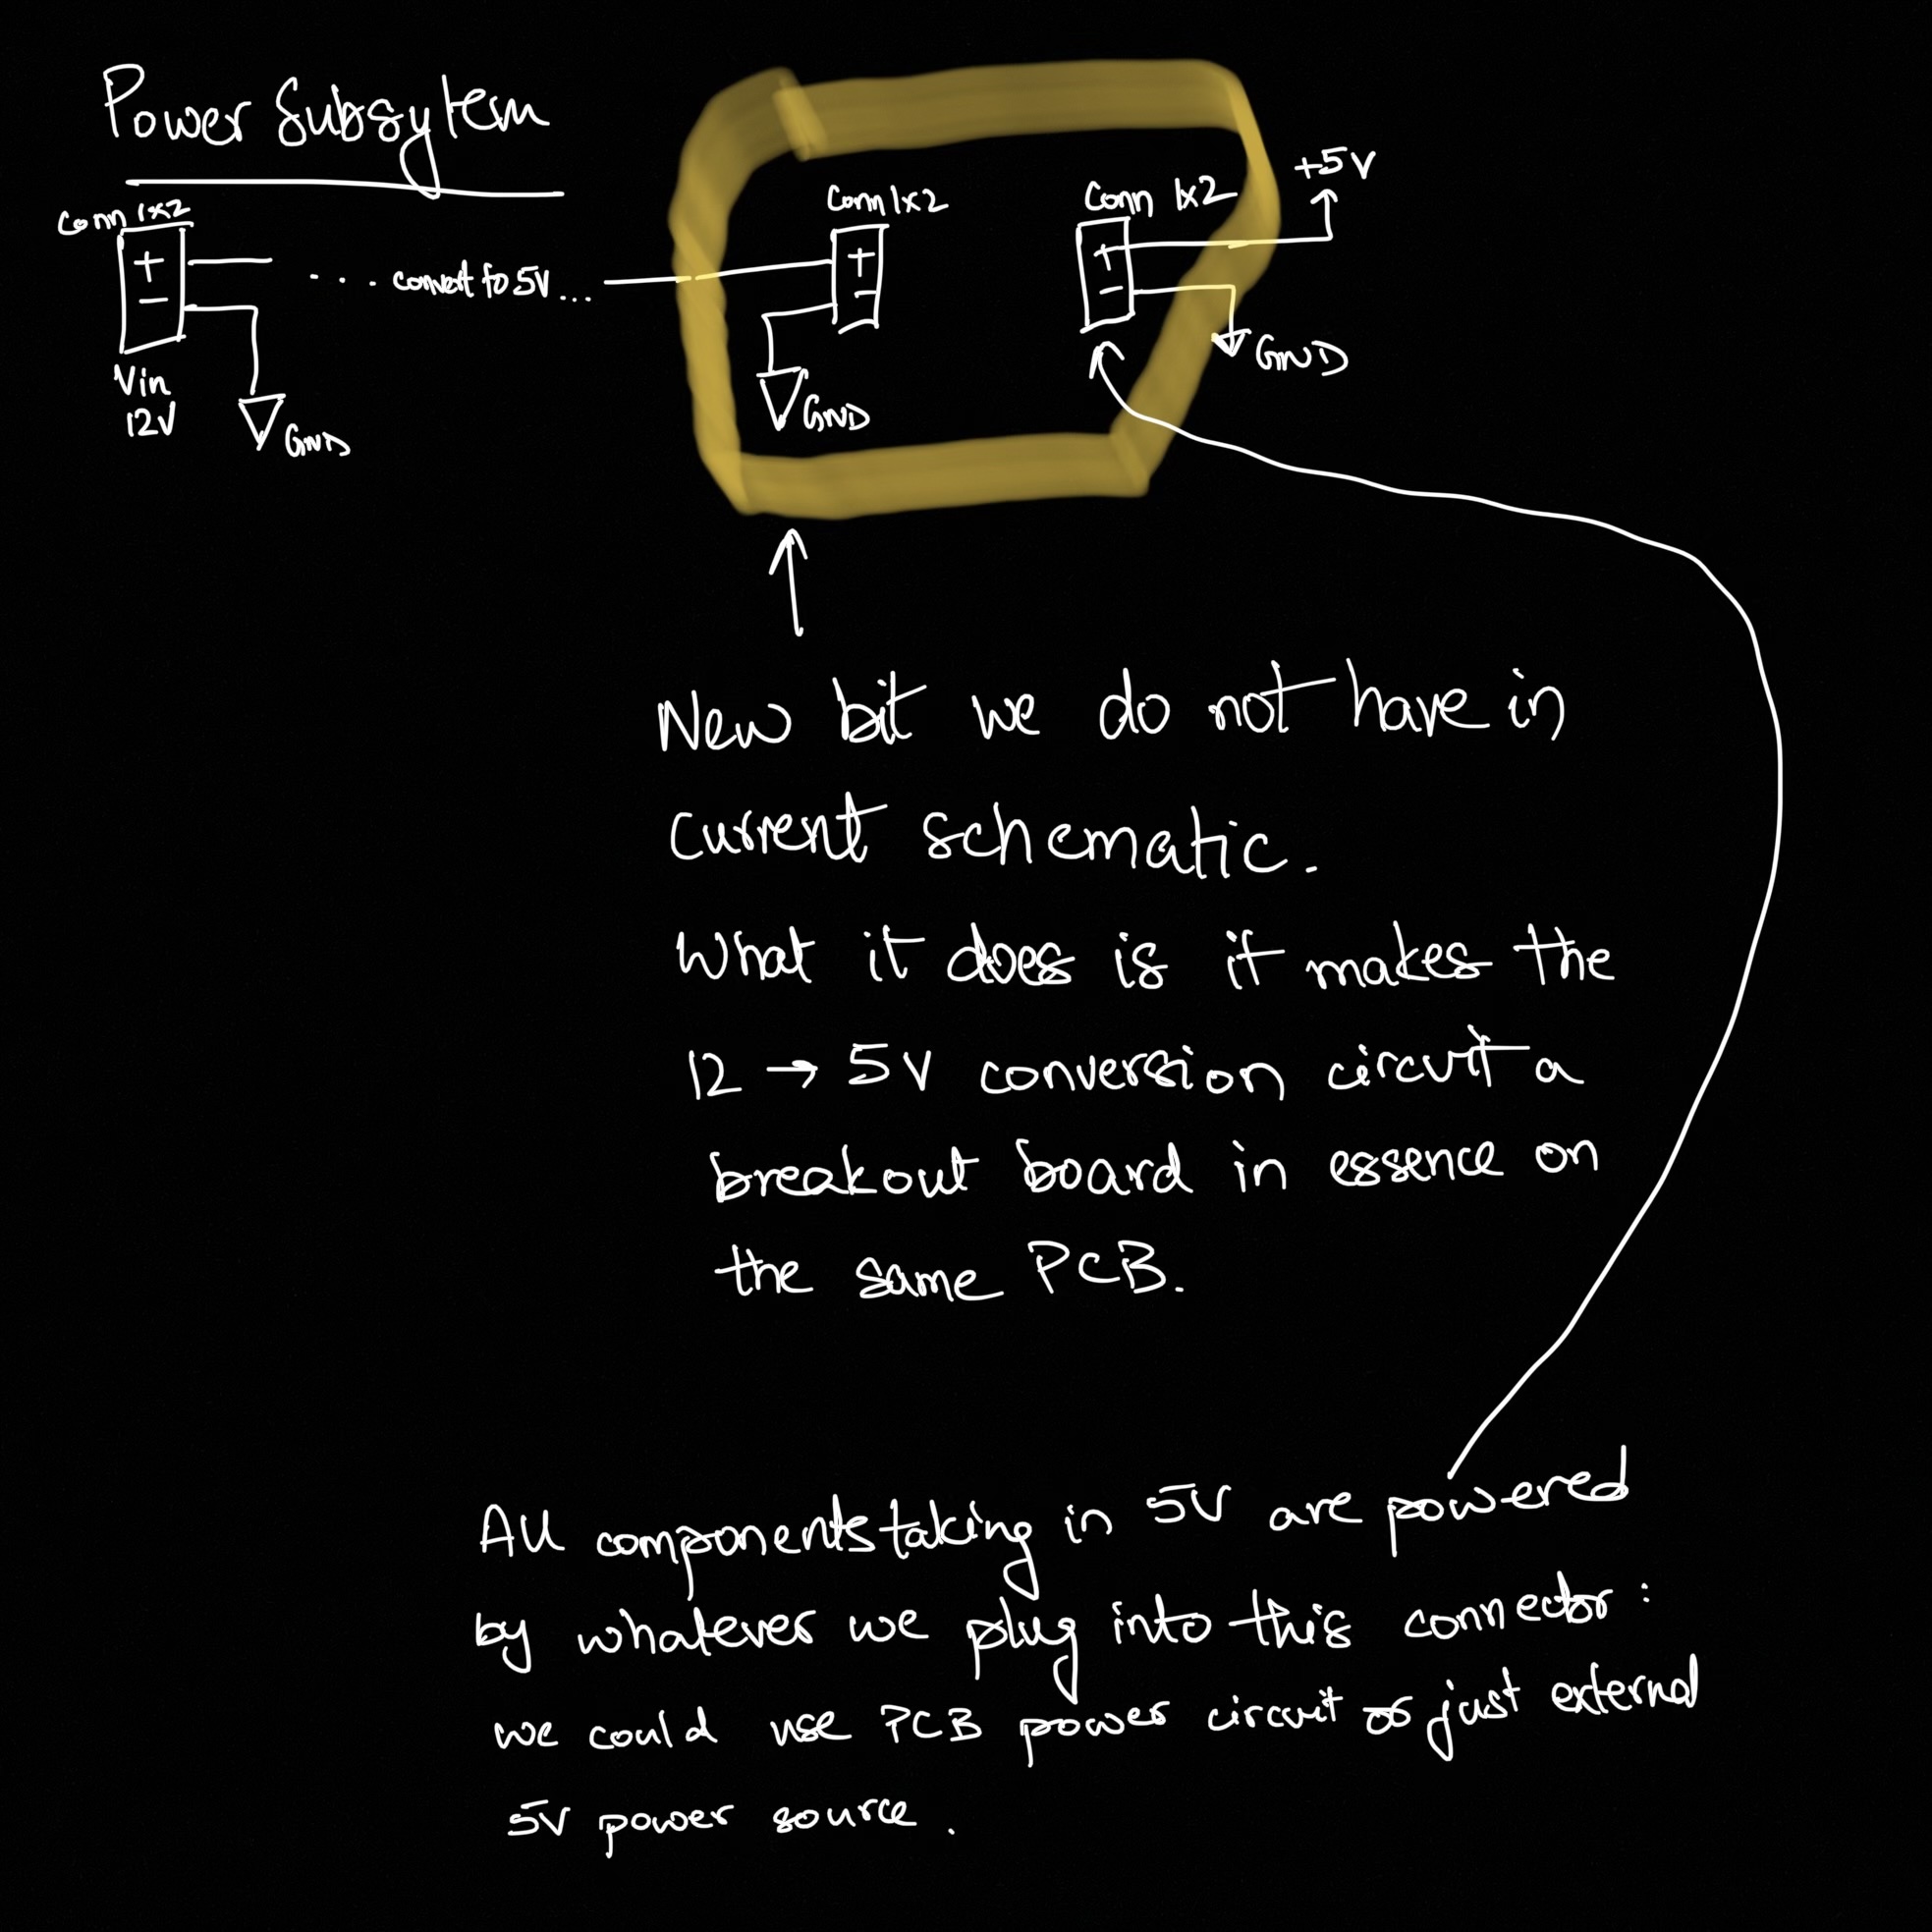 Power Subsytem
Conn 1x2
+
−
Vin
12V
GND
... convert to 5V...
Conn 1x2
+
−
GND
Conn 1x2
+
−
+5V
GND
New bit we do not have in
current schematic.
What it does is it makes the
12 → 5V conversion circuit a
breakout board in essence on
the same PCB.
All components taking in 5V are powered
by whatever we plug into this connector:
we could use PCB power circuit or just external
5V power source.